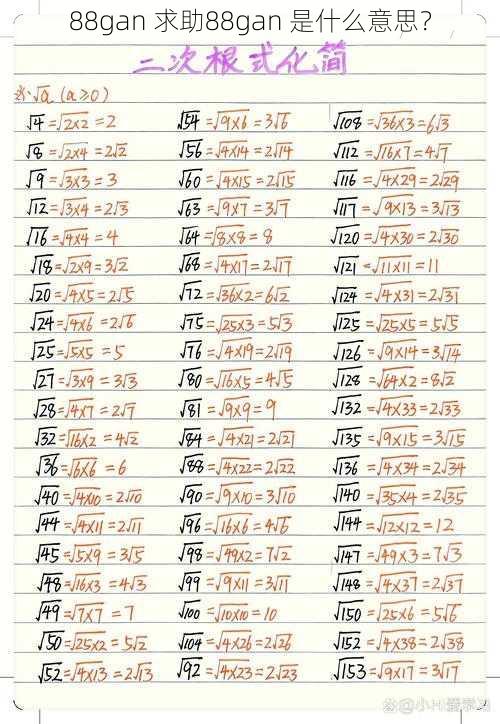 88gan 求助88gan 是什么意思？
二次根式化简
※√a (a≥0)
√4=√2×2=2
√8=√2×4=2√2
√9=√3×3=3
√12=√3×4=2√3
√16=√4×4=4
√18=√2×9=3√2
√20=√4×5=2√5
√24=√4×6=2√6
√25=√5×5=5
√27=√3×9=3√3
√28=√4×7=2√7
√32=√16×2=4√2
√36=√6×6=6
√40=√4×10=2√10
√44=√4×11=2√11
√45=√5×9=3√5
√48=√16×3=4√3
√49=√7×7=7
√50=√25×2=5√2
√52=√4×13=2√13
√54=√9×6=3√6
√56=√4×14=2√14
√60=√4×15=2√15
√63=√9×7=3√7
√64=√8×8=8
√68=√4×17=2√17
√72=√36×2=6√2
√75=√25×3=5√3
√76=√4×19=2√19
√80=√16×5=4√5
√81=√9×9=9
√84=√4×21=2√21
√88=√4×22=2√22
√90=√9×10=3√10
√96=√16×6=4√6
√98=√49×2=7√2
√99=√9×11=3√11
√100=√10×10=10
√104=√4×26=2√26
√92=√4×23=2√23
√108=√36×3=6√3
√112=√16×7=4√7
√116=√4×29=2√29
√117=√9×13=3√13
√120=√4×30=2√30
√121=√11×11=11
√124=√4×31=2√31
√125=√25×5=5√5
√126=√9×14=3√14
√128=√64×2=8√2
√132=√4×33=2√33
√135=√9×15=3√15
√136=√4×34=2√34
√140=√35×4=2√35
√144=√12×12=12
√147=√49×3=7√3
√148=√4×37=2√37
√150=√25×6=5√6
√152=√4×38=2√38
√153=√9×17=3√17